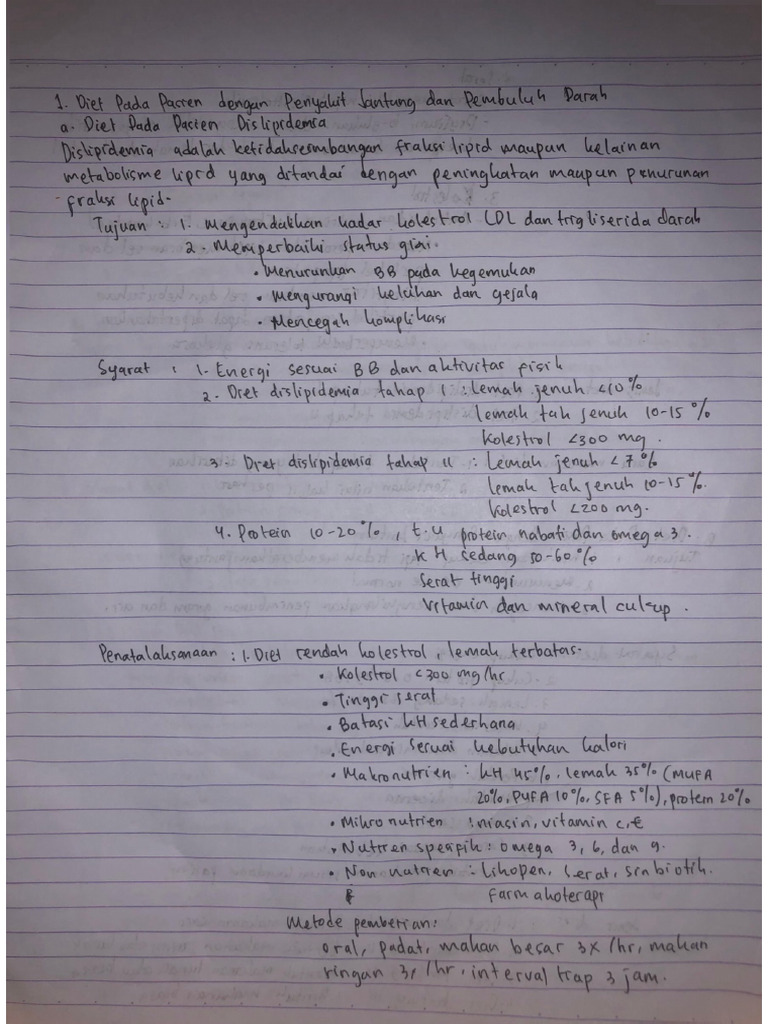 1. Diet Pada Pasien dengan Penyakit Jantung dan Pembuluh Darah
a. Diet Pada Pasien Dislipidemia
Dislipidemia adalah ketidakseimbangan fraksi lipid maupun kelainan
metabolisme lipid yang ditandai dengan peningkatan maupun penurunan
fraksi lipid.
Tujuan : 1. Mengendalikan kadar kolestrol LDL dan trigliserida darah
2. Memperbaiki status gizi.
• Menurunkan BB pada kegemukan
• Mengurangi keluhan dan gejala
• Mencegah komplikasi
Syarat : 1. Energi sesuai BB dan aktivitas fisik
2. Diet dislipidemia tahap I : Lemak jenuh <10%
lemak tak jenuh 10-15%
Kolestrol <300 mg.
3. Diet dislipidemia tahap II : Lemak jenuh <7%
lemak tak jenuh 10-15%.
Kolestrol <200 mg.
4. Protein 10-20%, t.u protein nabati dan omega 3.
KH sedang 50-60%
Serat tinggi
Vitamin dan mineral cukup.
Penatalaksanaan : 1. Diet rendah kolestrol, lemak terbatas.
• Kolestrol <300 mg/hr
• Tinggi serat
• Batasi KH sederhana
• Energi sesuai kebutuhan kalori
• Makronutrien : KH 45%, lemak 35% (MUFA
20%, PUFA 10%, SFA 5%), protein 20%
• Mikronutrien : niasin, vitamin C,E
• Nutrien spesifik : omega 3, 6, dan 9.
• Non nutrien : Likopen, serat, sinbiotik.
Farmakoterapi
Metode pemberian:
oral, padat, makan besar 3x/hr, makan
ringan 3x/hr, interval tiap 3 jam.